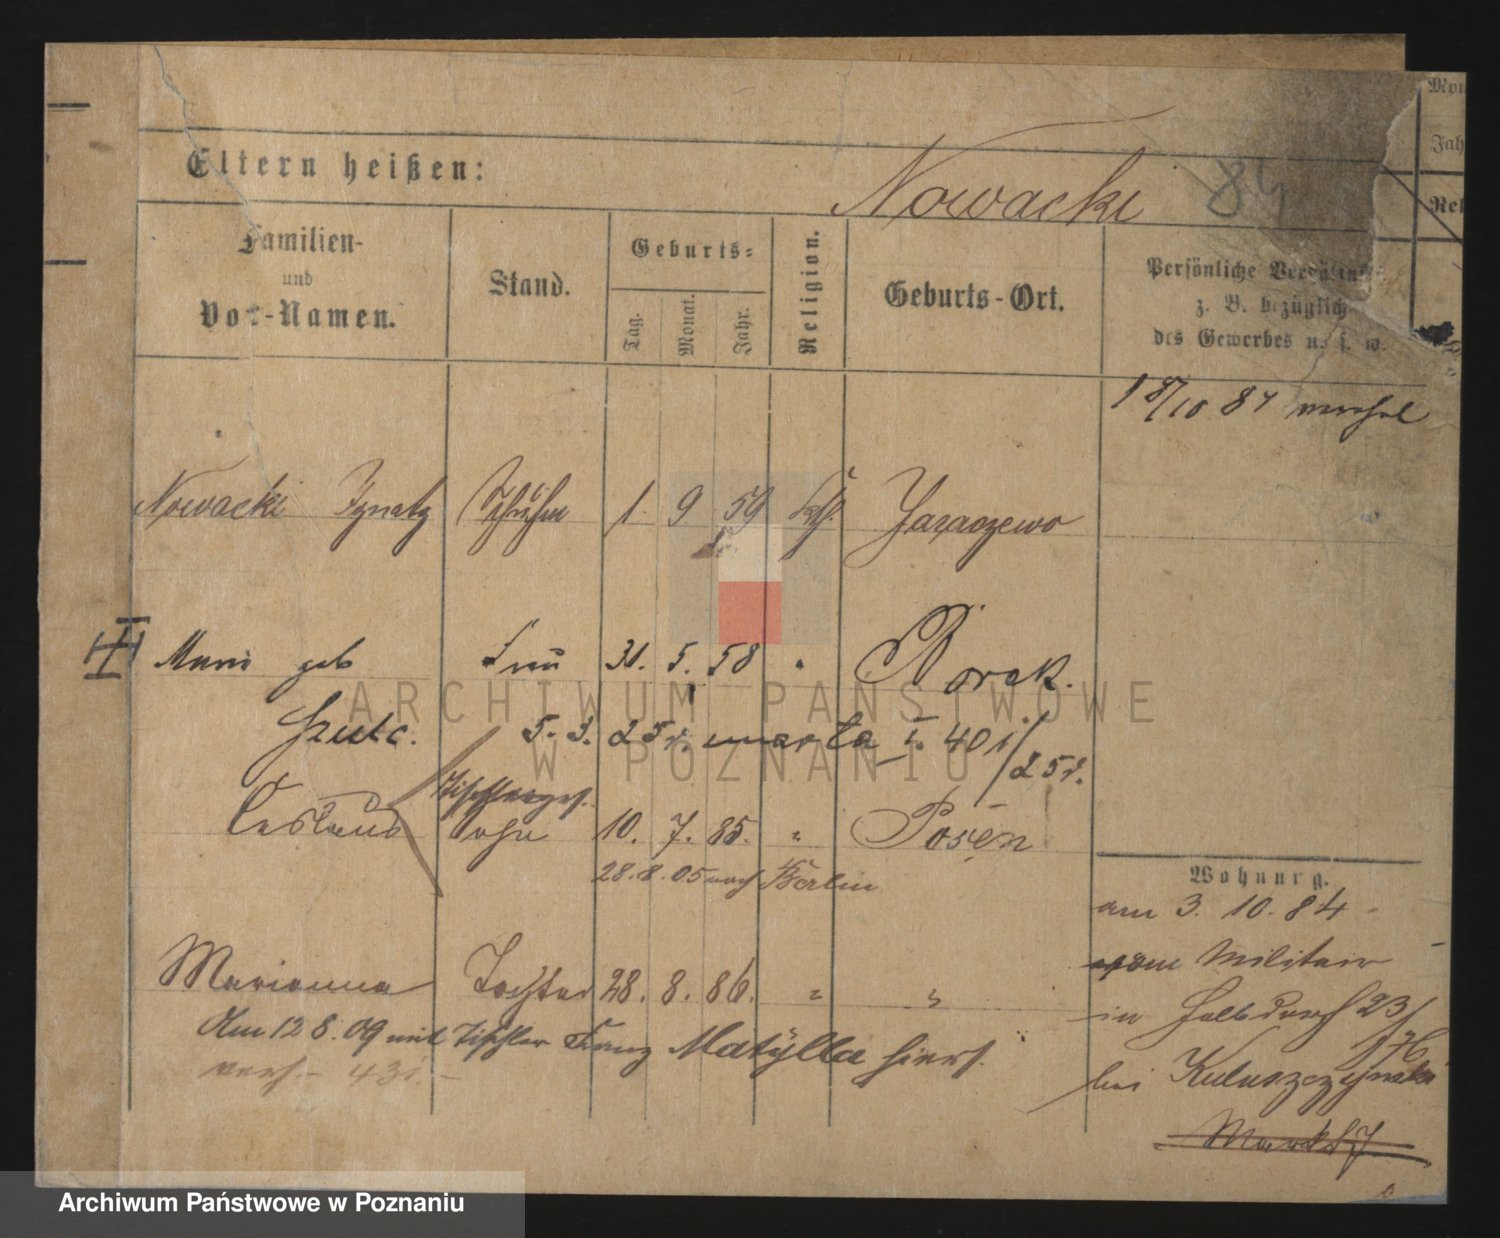 Eltern heißen:
Nowacki 84
Familien- und Vor-Namen.
Stand.
Geburts=
Tag. Monat. Jahr.
Religion.
Geburts-Ort.
Persönliche
z. B. bezüglich
des Gewerbes u. s. w.
Mon
Jah
Rel
18/10 84
Nowacki Ignatz 1. 9 59 kth. Jaraczewo
III
Marie geb Frau 31. 5. 58 " Borek.
Szulc. 5. 3. 25
Tischlerges.
Ceslaus Sohn 10. 7. 85. " Posen
28. 8. 05 nach Berlin
Wohnung.
am 3. 10. 84 -
vom Militair
in 23/
bei
Marianna Tochter 28. 8. 86. " "
Am 12 8. 09 mit Tischler Franz Matylla hiers.
verh. - 431. -
ARCHIWUM PAŃSTWOWE
W POZNANIU
Archiwum Państwowe w Poznaniu